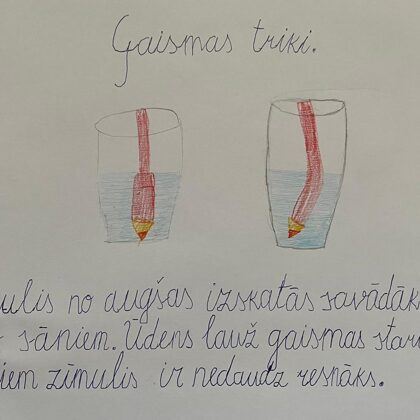 Gaismas triki.
ulis no augšas izskatās savādāk
sāniem. Ūdens lauž gaismas star
iem zīmulis ir nedaudz resnāks.